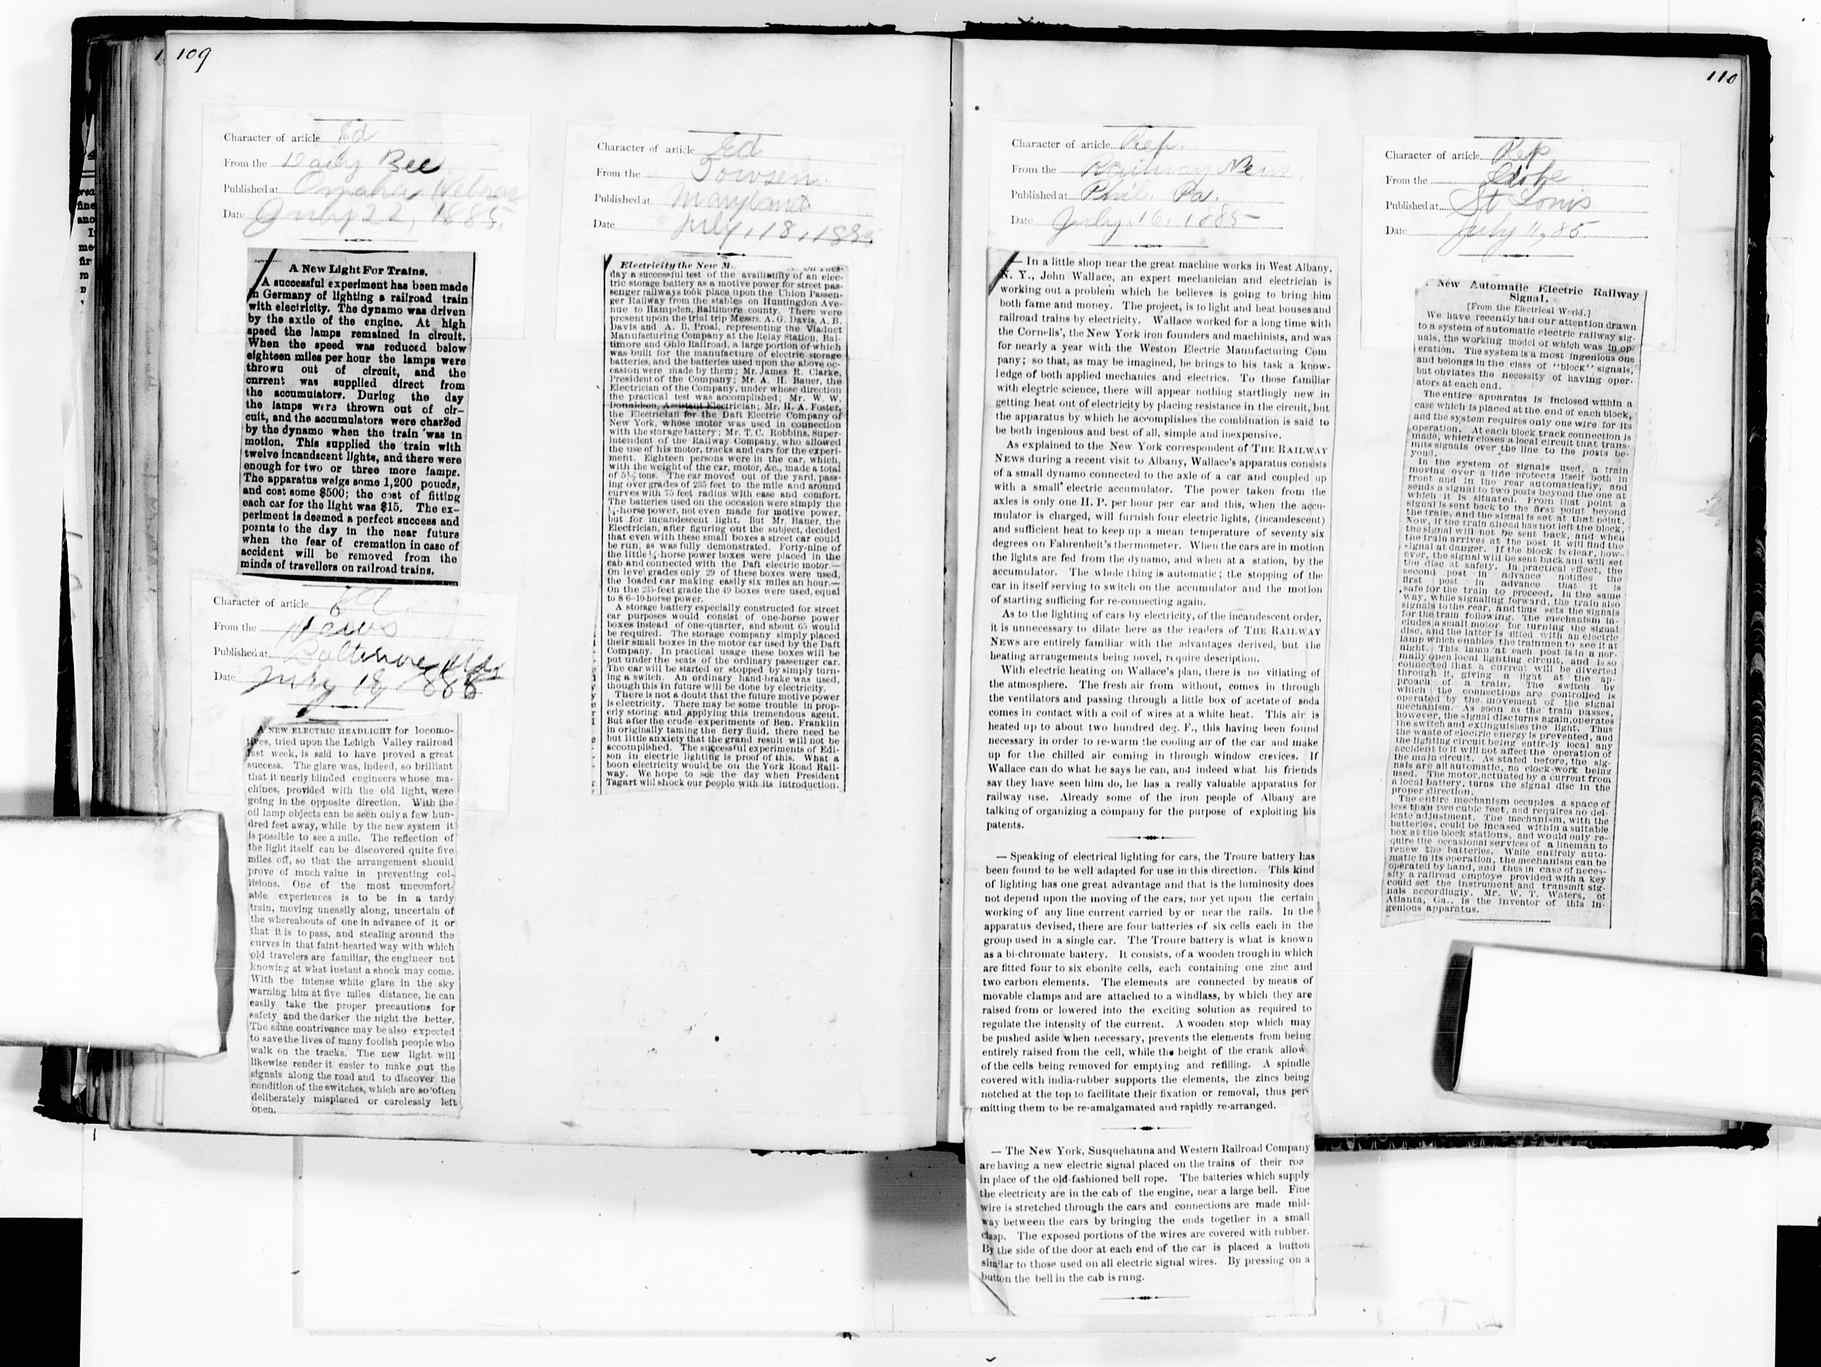 109
Character of article Ed
From the Daily Bee
Published at Omaha Nebras
Date July 22, 1885.
A New Light For Trains.
A successful experiment has been made
in Germany of lighting a railroad train
with electricity. The dynamo was driven
by the axtle of the engine. At high
speed the lamps remained in circuit.
When the speed was reduced below
eighteen miles per hour the lamps were
thrown out of circuit, and the
current was supplied direct from
the accumulators. During the day
the lamps were thrown out of cir-
cuit, and the accumulators were charged
by the dynamo when the train was in
motion. This supplied the train with
twelve incandescent lights, and there were
enough for two or three more lamps.
The apparatus weigs some 1,200 pounds,
and cost some $500; the cost of fitting
each car for the light was $15. The ex-
periment is deemed a perfect success and
points to the day in the near future
when the fear of cremation in case of
accident will be removed from the
minds of travellers on railroad trains.
Character of article Ed
From the News
Published at Baltimore Md
Date July 18, 1885
A NEW ELECTRIC HEADLIGHT for locomo-
tives, tried upon the Lehigh Valley railroad
last week, is said to have proved a great
success. The glare was, indeed, so brilliant
that it nearly blinded engineers whose ma-
chines, provided with the old light, were
going in the opposite direction. With the
oil lamp objects can be seen only a few hun-
dred feet away, while by the new system it
is possible to see a mile. The reflection of
the light itself can be discovered quite five
miles off, so that the arrangement should
prove of much value in preventing col-
lisions. One of the most uncomfort-
able experiences is to be in a tardy
train, moving uneasily along, uncertain of
the whereabouts of one in advance of it or
that it is to pass, and stealing around the
curves in that faint-hearted way with which
old travelers are familiar, the engineer not
knowing at what instant a shock may come.
With the intense white glare in the sky
warning him at five miles distance, he can
easily take the proper precautions for
safety and the darker the night the better.
The same contrivance may be also expected
to save the lives of many foolish people who
walk on the tracks. The new light will
likewise render it easier to make out the
signals along the road and to discover the
condition of the switches, which are so often
deliberately misplaced or carelessly left
open.
Character of article Ed
From the Towson
Published at Maryland
Date July, 18, 1885
Electricity the New M. On Tues-
day a successful test of the availability of an elec-
tric storage battery as a motive power for street pas-
senger railways took place upon the Union Passen-
ger Railway from the stables on Huntingdon Ave-
nue to Hampden, Baltimore county. There were
present upon the trial trip Messrs. A. G. Davis, A. B.
Davis and A. B. Proal, representing the Viaduct
Manufacturing Company at the Relay Station, Bal-
timore and Ohio Railroad, a large portion of which
was built for the manufacture of electric storage
batteries, and the batteries used upon the above oc-
casion were made by them; Mr. James R. Clarke,
President of the Company; Mr. A. H. Bauer, the
Electrician of the Company, under whose direction
the practical test was accomplished; Mr. W. W.
Donaldson, Assistant Electrician; Mr. H. A. Foster,
the Electrician for the Daft Electric Company of
New York, whose motor was used in connection
with the storage battery; Mr. T. C. Robbins, Super-
intendent of the Railway Company, who allowed
the use of his motor, tracks and cars for the experi-
ment. Eighteen persons were in the car, which,
with the weight of the car, motor, &c., made a total
of 5½ tons. The car moved out of the yard, pass-
ing over grades of 235 feet to the mile and around
curves with 75 feet radius with ease and comfort.
The batteries used on the occasion were simply the
¼-horse power, not even made for motive power,
but for incandescent light. But Mr. Bauer, the
Electrician, after figuring out the subject, decided
that even with these small boxes a street car could
be run, as was fully demonstrated. Forty-nine of
the little ¼-horse power boxes were placed in the
cab and connected with the Daft electric motor.—
On level grades only 29 of these boxes were used,
the loaded car making easily six miles an hour.—
On the 235-feet grade the 49 boxes were used, equal
to 8 6-10-horse power.
A storage battery especially constructed for street
car purposes would consist of one-horse power
boxes instead of one-quarter, and about 65 would
be required. The storage company simply placed
their small boxes in the motor car used by the Daft
Company. In practical usage these boxes will be
put under the seats of the ordinary passenger car.
The car will be started or stopped by simply turn-
ing a switch. An ordinary hand-brake was used,
though this in future will be done by electricity.
There is not a doubt that the future motive power
is electricity. There may be some trouble in prop-
erly storing and applying this tremendous agent.
But after the crude experiments of Ben. Franklin
in originally taming the fiery fluid, there need be
but little anxiety that the grand result will not be
accomplished. The successful experiments of Edi-
son in electric lighting is proof of this. What a
boon electricity would be on the York Road Rail-
way. We hope to see the day when President
Tagart will shock our people with its introduction.
110
Character of article Rep.
From the Railway News
Published at Phil. Pa.
Date July 16, 1885
— In a little shop near the great machine works in West Albany,
N. Y., John Wallace, an expert mechanician and electrician is
working out a problem which he believes is going to bring him
both fame and money. The project, is to light and heat houses and
railroad trains by electricity. Wallace worked for a long time with
the Cornelis', the New York iron founders and machinists, and was
for nearly a year with the Weston Electric Manufacturing Com
pany; so that, as may be imagined, he brings to his task a know-
ledge of both applied mechanics and electrics. To those familiar
with electric science, there will appear nothing startlingly new in
getting heat out of electricity by placing resistance in the circuit, but
the apparatus by which he accomplishes the combination is said to
be both ingenious and best of all, simple and inexpensive.
As explained to the New York correspondent of THE RAILWAY
NEWS during a recent visit to Albany, Wallace's apparatus consists
of a small dynamo connected to the axle of a car and coupled up
with a small electric accumulator. The power taken from the
axles is only one H. P. per hour per car and this, when the accu-
mulator is charged, will furnish four electric lights, (incandescent)
and sufficient heat to keep up a mean temperature of seventy six
degrees on Fahrenheit's thermometer. When the cars are in motion
the lights are fed from the dynamo, and when at a station, by the
accumulator. The whole thing is automatic; the stopping of the
car in itself serving to switch on the accumulator and the motion
of starting sufficing for re-connecting again.
As to the lighting of cars by electricity, of the incandescent order,
it is unnecessary to dilate here as the readers of THE RAILWAY
NEWS are entirely familiar with the advantages derived, but the
heating arrangements being novel, require description.
With electric heating on Wallace's plan, there is no vitiating of
the atmosphere. The fresh air from without, comes in through
the ventilators and passing through a little box of acetate of soda
comes in contact with a coil of wires at a white heat. This air is
heated up to about two hundred deg. F., this having been found
necessary in order to re-warm the cooling air of the car and make
up for the chilled air coming in through window crevices. If
Wallace can do what he says he can, and indeed what his friends
say they have seen him do, he has a really valuable apparatus for
railway use. Already some of the iron people of Albany are
talking of organizing a company for the purpose of exploiting his
patents.
— Speaking of electrical lighting for cars, the Troure battery has
been found to be well adapted for use in this direction. This kind
of lighting has one great advantage and that is the luminosity does
not depend upon the moving of the cars, nor yet upon the certain
working of any line current carried by or near the rails. In the
apparatus devised, there are four batteries of six cells each in the
group used in a single car. The Troure battery is what is known
as a bi-chromate battery. It consists, of a wooden trough in which
are fitted four to six ebonite cells, each containing one zinc and
two carbon elements. The elements are connected by means of
movable clamps and are attached to a windlass, by which they are
raised from or lowered into the exciting solution as required to
regulate the intensity of the current. A wooden stop which may
be pushed aside when necessary, prevents the elements from being
entirely raised from the cell, while the height of the crank allow
of the cells being removed for emptying and refilling. A spindle
covered with india-rubber supports the elements, the zincs being
notched at the top to facilitate their fixation or removal, thus per-
mitting them to be re-amalgamated and rapidly re-arranged.
— The New York, Susquehanna and Western Railroad Company
are having a new electric signal placed on the trains of their roa
in place of the old-fashioned bell rope. The batteries which supply
the electricity are in the cab of the engine, near a large bell. Fine
wire is stretched through the cars and connections are made mid-
way between the cars by bringing the ends together in a small
clasp. The exposed portions of the wires are covered with rubber.
By the side of the door at each end of the car is placed a button
similar to those used on all electric signal wires. By pressing on a
button the bell in the cab is rung.
Character of article Rep
From the Globe
Published at St Louis
Date July 11, 85
New Automatic Electric Railway
Signal.
[From the Electrical World.]
We have recently had our attention drawn
to a system of automatic electric railway sig-
nals, the working model of which was in op-
eration. The system is a most ingenious one
and belongs in the class of "block" signals,
but obviates the necessity of having oper-
ators at each end.
The entire apparatus is inclosed within a
case which is placed at the end of each block,
and the system requires only one wire for its
operation. At each block track connection is
made, which closes a local circuit that trans-
mits signals over the line to the posts be-
yond.
In the system of signals used, a train
moving over a line protects itself both in
front and in the rear automatically, and
sends a signal to two posts beyond the one at
which it is situated. From that point a
signal is sent back to the first point beyond
the train, and the signal is set at that point.
Now, if the train ahead has not left the block,
the signal will not be sent back, and when
the train arrives at the post it will find the
signal at danger. If the block is clear, how-
ever, the signal will be sent back and will set
the disc at safety. In practical effect, the
second post in advance notifies the
first post in advance that it is
safe for the train to proceed. In the same
way, while signaling forward, the train also
signals to the rear, and thus sets the signals
for the train following. The mechanism in-
cludes a small motor for turning the signal
disc, and the latter is fitted with an electric
lamp which enables the trainmen to see it at
night. This lamp at each post is in a nor-
mally open local lighting circuit, and is so
connected that a current will be diverted
through it, giving a light at the ap-
proach of a train. The switch by
which the connections are controlled is
operated by the movement of the signal
mechanism. As soon as the train passes,
however, the signal discturns again, operates
the switch and extinguishes the light. Thus
the waste of electric energy is prevented, and
the lighting circuit being entirely local any
accident to it will not affect the operation of
the main circuit. As stated before, the sig-
nals are all automatic, no clock-work being
used. The motor, actuated by a current from
a local battery, turns the signal disc in the
proper direction.
The entire mechanism occupies a space of
less than two cubic feet, and requires no del-
icate adjustment. The mechanism, with the
batteries, could be incased within a suitable
box at the block stations, and would only re-
quire the occasional services of a lineman to
renew the batteries. While entirely auto-
matic in its operation, the mechanism can be
operated by hand, and thus in case of neces-
sity a railroad employe provided with a key
could set the instrument and transmit sig-
nals accordingly. Mr. W. T. Waters, of
Atlanta, Ga., is the inventor of this in-
genious apparatus.